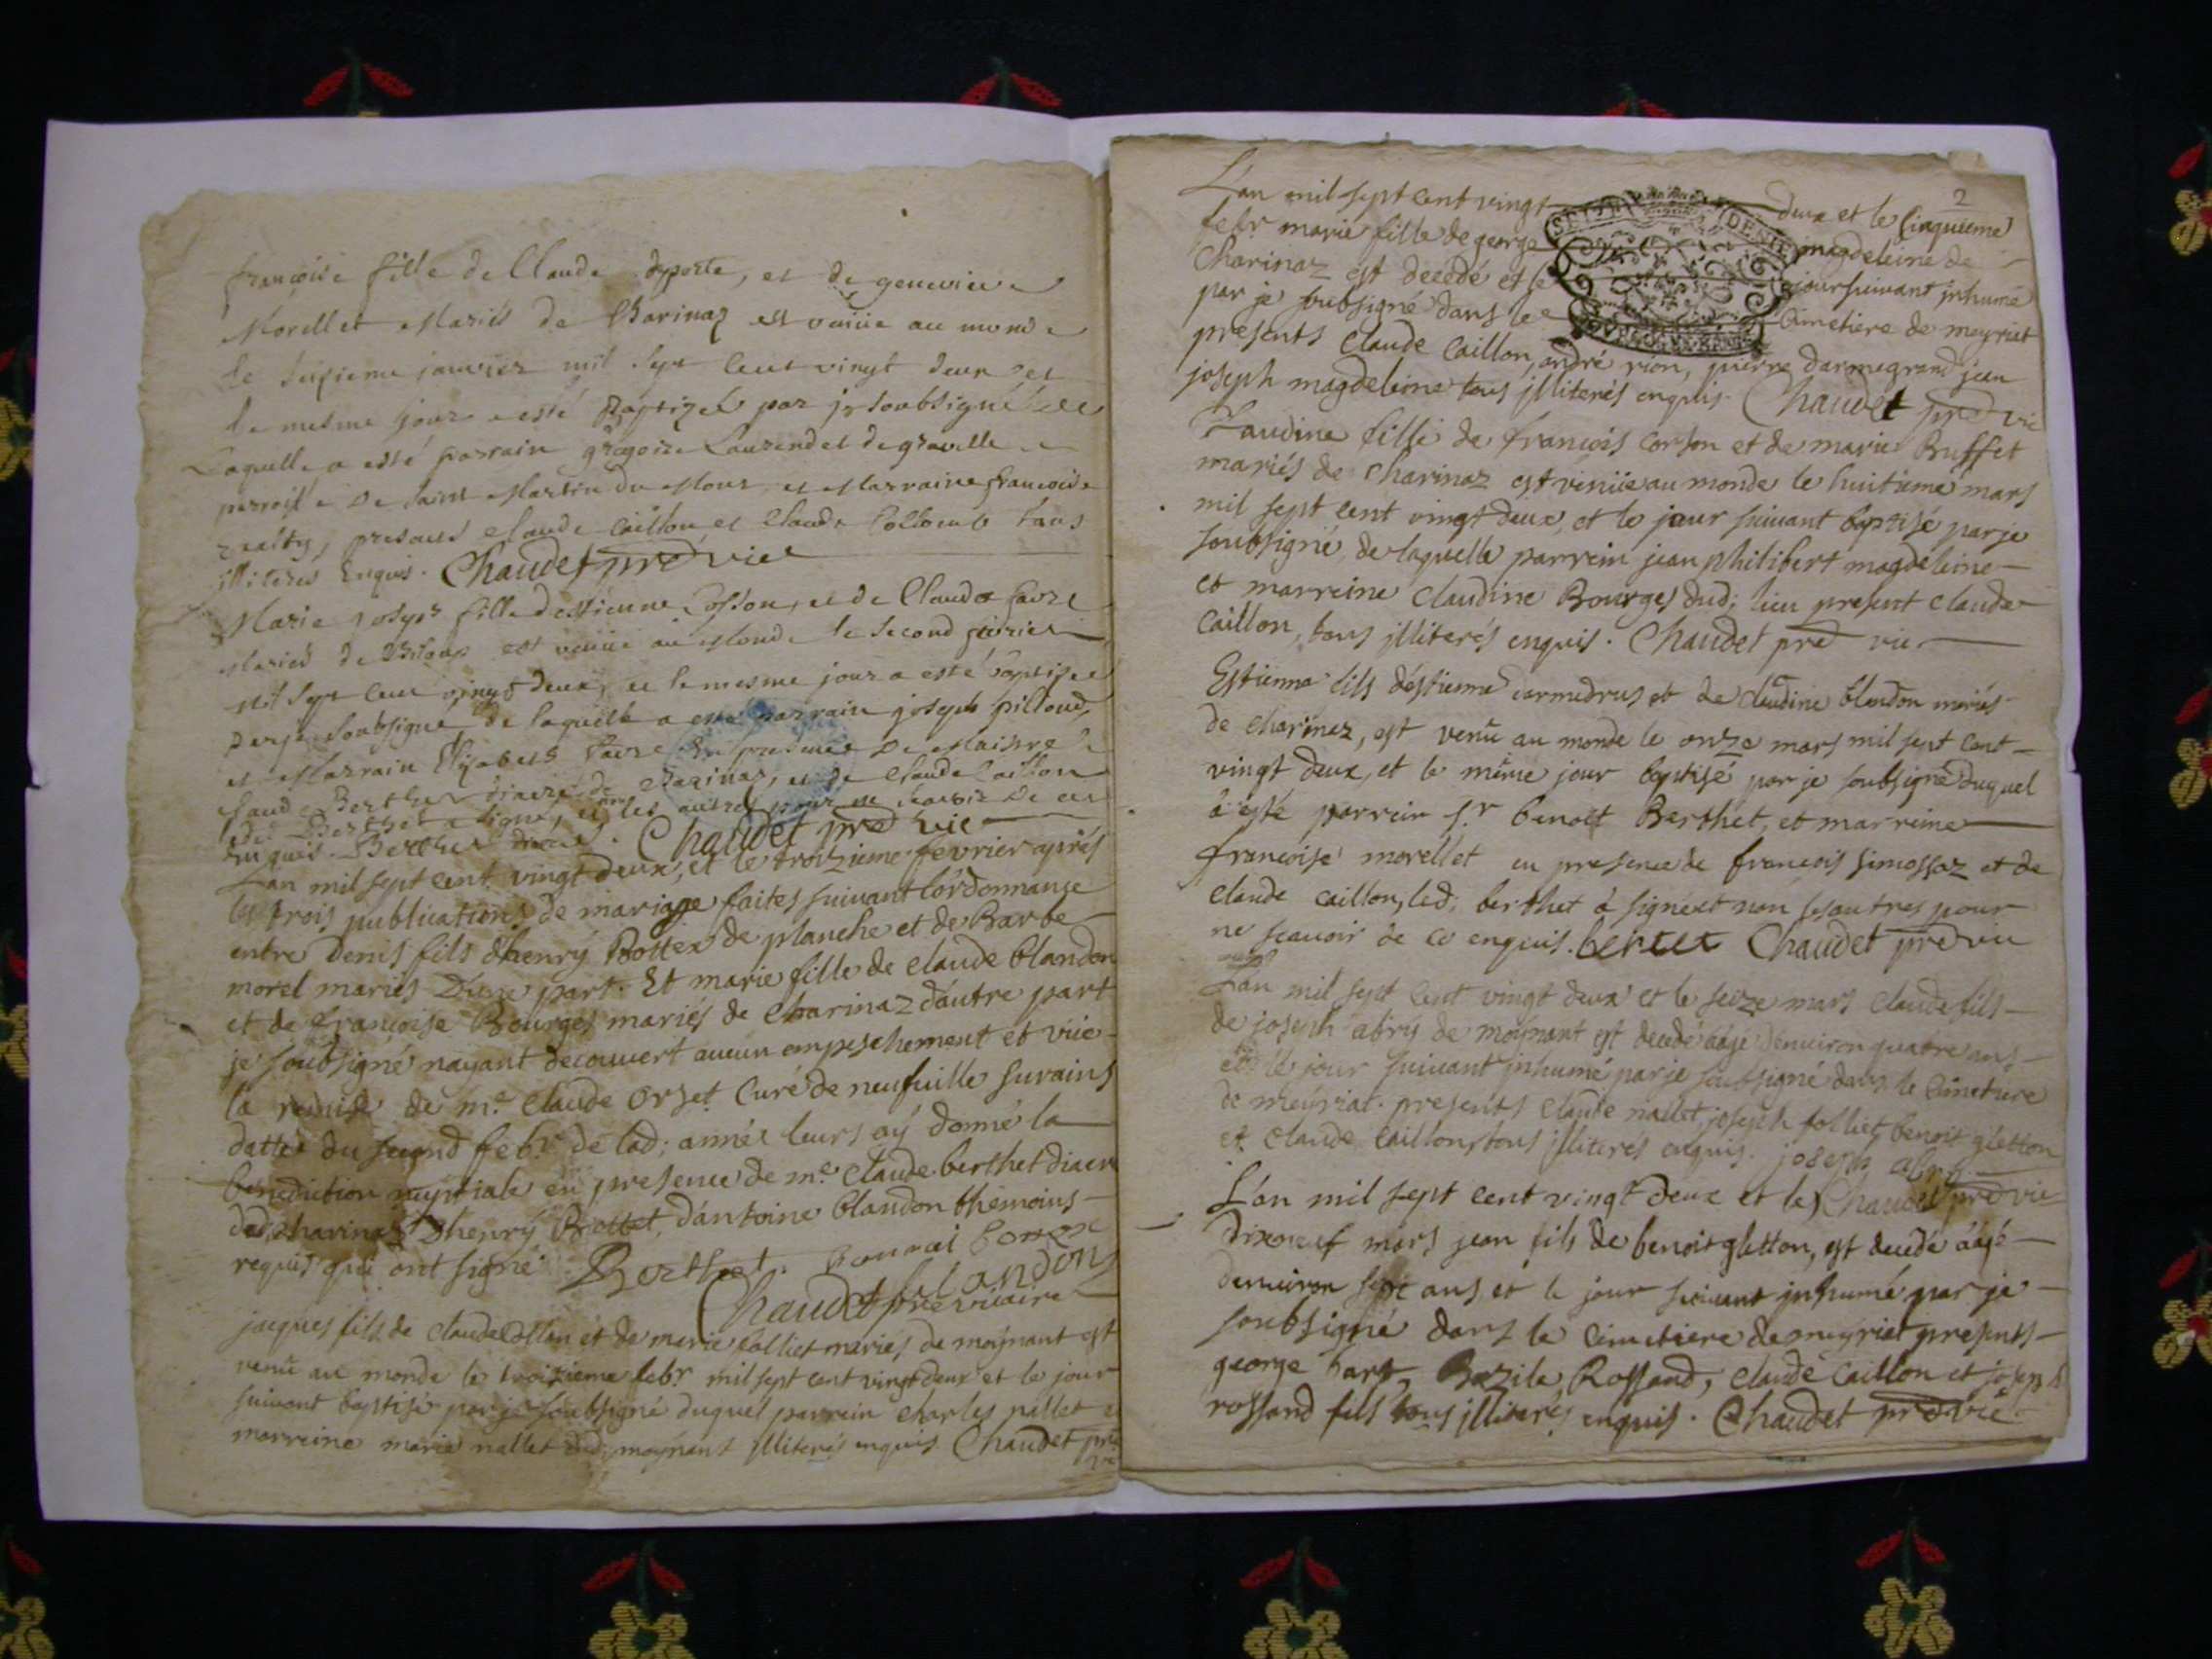 françoise fille de Claude dyposte, et de genevieve
Morellet Mariés de Charinaz est venüe au monde
le janvier mil sept cent vingt deux et
le mesme jour a esté Baptizée par je soubsigné
Laquelle a esté parrain gregoire Laurendet de gravelle
parroisse de Saint Martin du Mont, et Marraine francoise
presents Claude Caillon, et Claude Collomb tous
illiteres Enquis. Chaudet pre vic
Marie Joseph fille d'estienne Cosson, et de Clauda favre
Mariés de est venüe au Monde le second fevrier
mil sept cent vingt deux, et le mesme jour a esté baptizée
par je soubsigné, de laquelle a esté parrain joseph pilloud,
et Marrain Elizabeth favre En presence De Maistre
Claude Berthet diacre de Charinaz, et de Claude Caillon
led Berthet a signé, et non les autres pour ne scavoir de ce
enquis. Berthet diacre. Chaudet pre vic
L'an mil sept cent vingt deux, et le troizieme fevrier aprés
les trois publications de mariage faites suivant l'ordonnance
entre Denis fils dhenry Bottex de planche et de Barbe
morel mariés D'une part. Et marie fille de claude blandon
et de francoise Bourges mariés de Charinaz d'autre part
je soubsigné nayant decouvert aucun empeschement et vüe
la remise de me. Claude Orset Curé de neufuille surains
dattée du second febr. de lad; année leurs aÿ donné la
bénédiction nuptiale en presence de me. Claude berthet diacre
dud. charinaz Dhenrÿ Bottet, d'antoine blandon thémoins
requis qui ont signé. Berthet.
blandon
Chaudet pre vicaire
jacques fils de claude Collon et de marie folliet mariés de moÿnant est
venü au monde le troisieme febr mil sept cent vingt deux et le jour
suivant baptisé par je soubsigné duquel parrein charles nallet et
marreine marie nallet dud; moÿnant jlliterés enquis Chaudet pre
vic
2
L'an mil sept cent vingt deux et le cinquieme
febr marie fille de george magdeleine de
Charinaz est decedé et le jour suivant jnhumé
par je soubsigné dans le Cimetiere de meyriat
presents Claude Caillon, andré rion, pierre darmegrand jean
joseph magdeleine tous jlliterés enquis. Chaudet pre vic
Claudine fille de francois corson et de marie Buffet
mariés de Charinaz est venüe au monde le huitieme mars
mil sept cent vingt deux, et le jour suivant baptisé par je
soubsigné, de laquelle parrein jean philibert magdeleine
et marreine Claudine Bourges dud; lieu present claude
Caillon, tous jlliterés enquis. Chaudet pre vic
Estienne fils d'éstienne et de claudine blandon mariés
de charinez, est venü au monde le onze mars mil sept cent
vingt deux, et le même jour baptisé par je soubsigné duquel
à esté parrein sr. benoit Berthet, et marreine
francoise morellet en presence de francois simossaz et de
claude caillon, led; berthet à signé et non les autres pour
ne scavoir de ce enquis. bertet Chaudet pre vic
L'an mil sept cent vingt deux et le seize mars Claude fils
de joseph abry de moÿnant est decedé aágé denuiron quatre ans
et le jour suivant jnhumé par je soubsigné dans le Cimetiere
de meÿriat. presents Claude nallet, joseph folliet, benoit gletton
et Claude Caillon, tous jlliterés enquis. joseph abry
L'an mil sept cent vingt deux et le Chaudet pre vic
Dixneuf mars jean fils de benoit gletton, est decedé áagé
denuiron sept ans et le jour suivant jnhumé par je
soubsigné dans le Cimetiere de meyriat presents
george Bazile Rossand, Claude Caillon et joseph
rossand fils tous jlliterés enquis. Chaudet pre vic